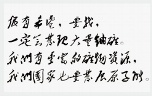 很有希望，要找，
一定会发现大量铀矿。
我们有丰富的矿物资源，
我们国家也要发展原子能。